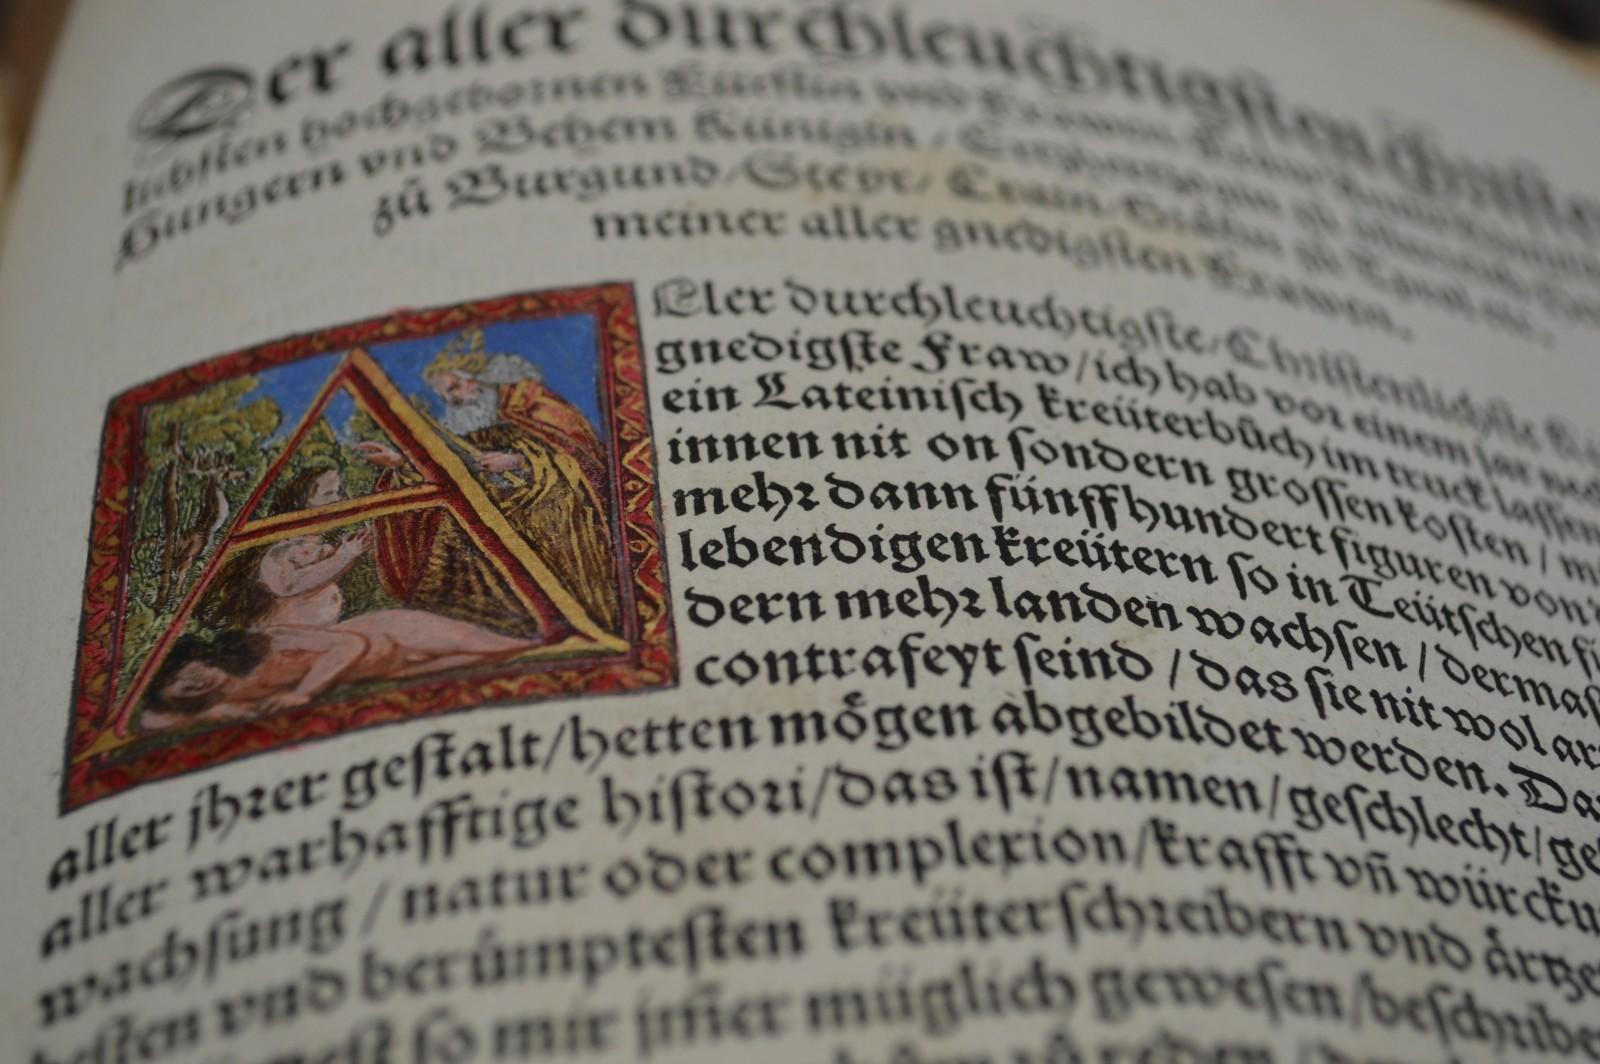 Der aller durchleuchtigſten Chriſte
lichſten hochgebornen Fürſtin vnd Frawen
Hungern vnd Behem Künigin / Ertzhertzogin zů
zů Burgund / Steyr / Crain Gräfin zů Tyrol etc.
meiner aller gnedigſten Frawen.
A Ller durchleuchtigſte / Chriſtenlichſte
gnedigſte Fraw / ich hab vor einem jar
ein Lateiniſch kreüterbůch im truck laſſen
innen nit on ſondern groſſen koſten / m
mehr dann fünffhundert figuren von
lebendigen kreütern ſo in Teütſchen
dern mehr landen wachſen / dermaſ
contrafeyt ſeind / das ſie nit wol ar
aller jhrer geſtalt / hetten mögen abgebildet werden. Da
aller warhafftige hiſtori / das iſt / namen / geſchlecht / ge
wachſung / natur oder complexion / krafft vñ würcku
beſten vnd berümpteſten kreüterſchreibern vnd ärtze
ſo mir jm̃er müglich geweſen / beſchribe